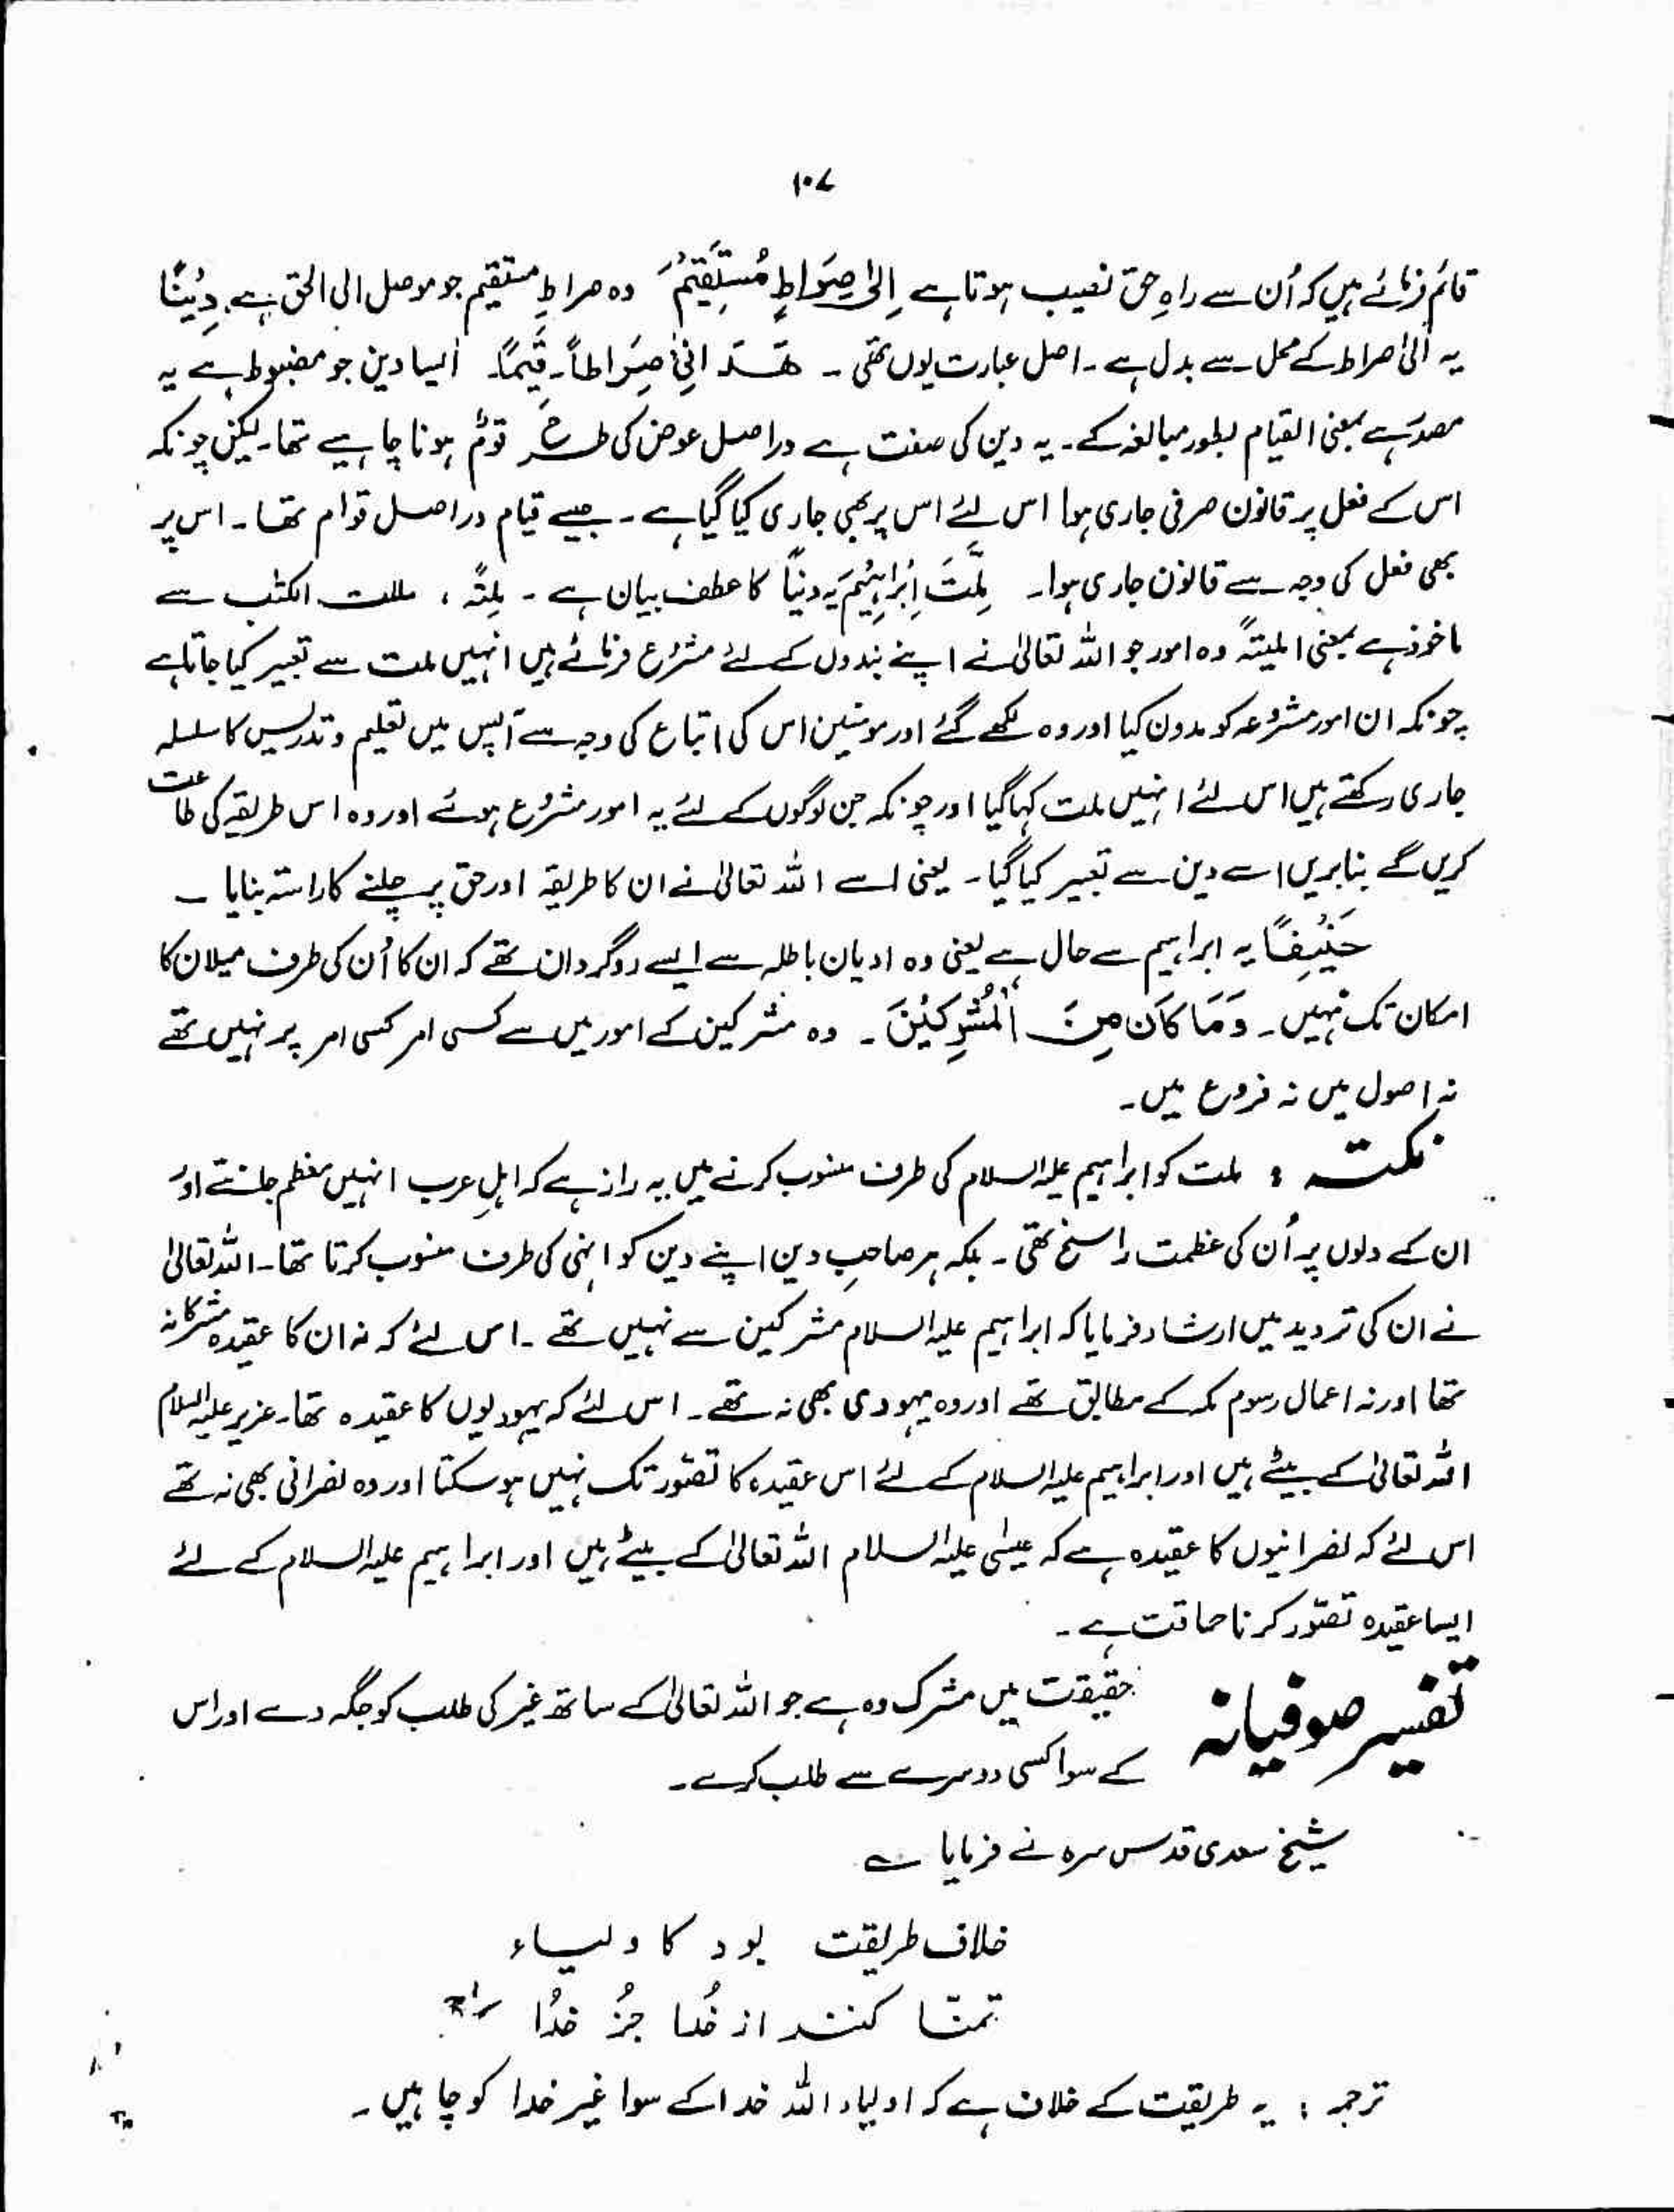 ۱۰۷
قائم فرمائے ہیں کہ اُن سے راہِ حق نصیب ہوتا ہے اِلیٰ صِرَاطٍ مُّسْتَقِيْمٍ وہ صراطِ مستقیم جو موصل الی الحق ہے، دِيْنًا
یہ الیٰ صراط کے محل سے بدل ہے ۔ اصل عبارت یوں تھی ۔ هَدَانِیْ صِرَاطاً ۔ قِيَمًا۔ ایسا دین جو مضبوط ہے یہ
مصدر ہے بمعنی القیام بطور مبالغہ کے ۔ یہ دین کی صفت ہے دراصل عوض کی طرح قوم ہونا چاہیے تھا۔ لیکن چونکہ
اس کے فعل پر قانون صرفی جاری ہوا اس لئے اس پر بھی جاری کیا گیا ہے ۔ جیسے قیام دراصل قوام تھا ۔ اس پر
بھی فعل کی وجہ سے قانون جاری ہوا۔ مِلَّتَ اِبْرَاهِيْمَ یہ دینًا کا عطف بیان ہے ۔ مِلّتہ ، مللت الکتٰب سے
ماخوذ ہے بمعنی املیتہ وہ امور جو اللہ تعالیٰ نے اپنے بندوں کے لئے مشروع فرمائے ہیں انہیں ملت سے تعبیر کیا جاتا ہے
چونکہ ان امور مشروعہ کو مدون کیا اور وہ لکھے گئے اور مومنین اس کی اتباع کی وجہ سے آپس میں تعلیم و تدریس کا سلسلہ
جاری رکھتے ہیں اس لئے انہیں ملت کہا گیا اور چونکہ جن لوگوں کے لئے یہ امور مشروع ہوئے اور وہ اس طریقہ کی طاعت
کریں گے بنا بریں اسے دین سے تعبیر کیا گیا ۔ یعنی اسے اللہ تعالیٰ نے ان کا طریقہ اور حق پر چلنے کا راستہ بنایا ۔
حَنِيْفًا یہ ابراہیم سے حال ہے یعنی وہ ادیان باطلہ سے ایسے روگردان تھے کہ ان کا اُن کی طرف میلان کا
امکان تک نہیں ۔ وَمَا كَانَ مِنَ الْمُشْرِكِيْنَ ۔ وہ مشرکین کے امور میں سے کسی امر کسی امر پر نہیں تھے
نہ اصول میں نہ فروع میں ۔
نکتہ : ملت کو ابراہیم علیہ السلام کی طرف منسوب کرنے میں یہ راز ہے کہ اہلِ عرب انہیں معظم جانتے اور
ان کے دلوں پر اُن کی عظمت راسخ تھی ۔ بلکہ ہر صاحبِ دین اپنے دین کو انہی کی طرف منسوب کرتا تھا ۔ اللہ تعالیٰ
نے ان کی تردید میں ارشاد فرمایا کہ ابراہیم علیہ السلام مشرکین سے نہیں تھے ۔ اس لئے کہ نہ ان کا عقیدہ مشرکانہ
تھا اور نہ اعمال رسوم مکہ کے مطابق تھے اور وہ یہودی بھی نہ تھے ۔ اس لئے کہ یہودیوں کا عقیدہ تھا۔ عزیر علیہ السلام
اللہ تعالیٰ کے بیٹے ہیں اور ابراہیم علیہ السلام کے لئے اس عقیدہ کا تصوّر تک نہیں ہو سکتا اور وہ نصرانی بھی نہ تھے
اس لئے کہ نصرانیوں کا عقیدہ ہے کہ عیسٰی علیہ السلام اللہ تعالیٰ کے بیٹے ہیں اور ابراہیم علیہ السلام کے لئے
ایسا عقیدہ تصوّر کرنا حماقت ہے ۔
تفسیر صوفیانہ حقیقت میں مشرک وہ ہے جو اللہ تعالیٰ کے ساتھ غیر کی طلب کو جگہ دے اور اس
کے سوا کسی دوسرے سے طلب کرے ۔
شیخ سعدی قدس سرہ نے فرمایا ؎
خلاف طریقت بود کا ولیاء
تمنّا کنند از خُدا جُز خدُا
ترجمہ : یہ طریقت کے خلاف ہے کہ اولیاء اللہ خدا کے سوا غیر خدا کو چاہیں ۔